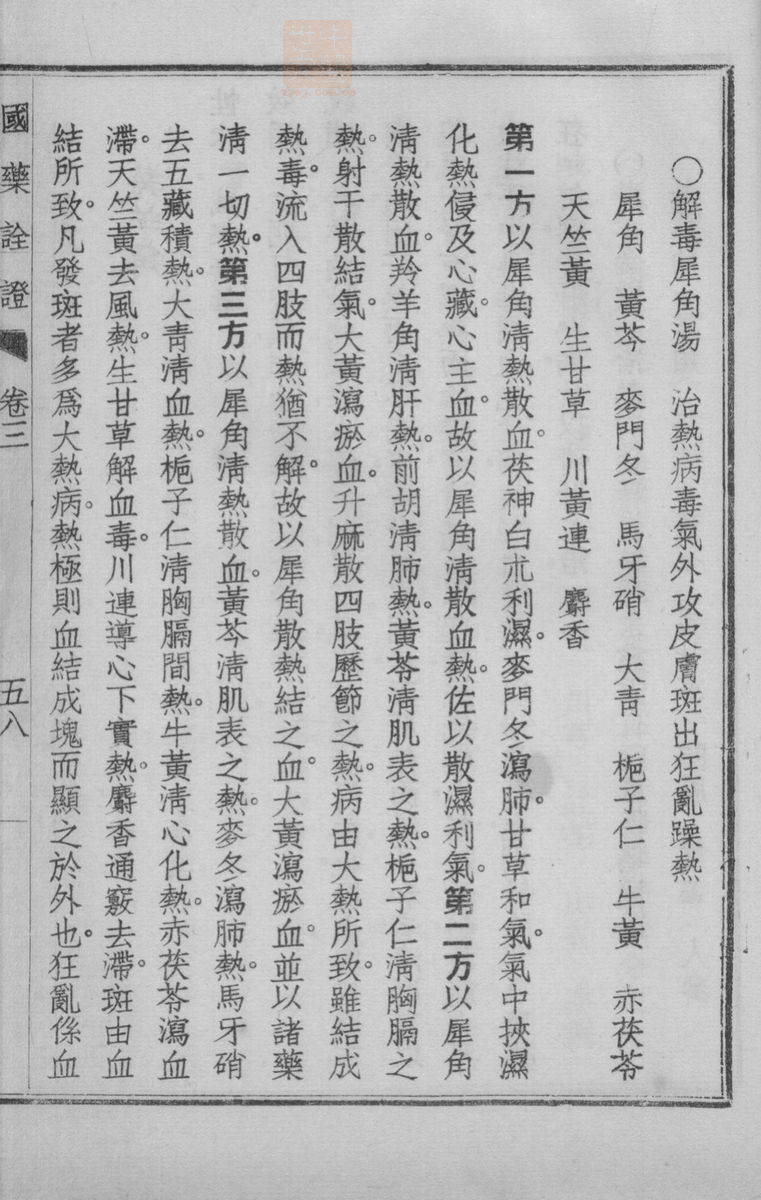 〇解毒犀角湯　治熱病毒氣外攻皮膚斑出狂亂躁熱
犀角　黃芩　麥門冬　馬牙硝　大靑　梔子仁　牛黃　赤茯苓
天竺黃　生甘草　川黃連　麝香
第一方以犀角淸熱散血。茯神白朮利濕。麥門冬瀉肺。甘草和氣。氣中挾濕
化熱侵及心藏。心主血。故以犀角淸散血熱。佐以散濕利氣。第二方以犀角
淸熱散血。羚羊角淸肝熱。前胡淸肺熱。黃芩淸肌表之熱。梔子仁淸胸膈之
熱。射干散結氣。大黃瀉瘀血。升麻散四肢歷節之熱。病由大熱所致。雖結成
熱毒。流入四肢而熱猶不解。故以犀角散熱結之血。大黃瀉瘀血。並以諸藥
淸一切熱。第三方以犀角淸熱散血。黃芩淸肌表之熱。麥冬瀉肺熱。馬牙硝
去五藏積熱。大靑淸血熱。梔子仁淸胸膈間熱。牛黃淸心化熱。赤茯苓瀉血
滯。天竺黃去風熱。生甘草解血毒。川連導心下實熱。麝香通竅去滯。斑由血
結所致。凡發斑者多爲大熱病。熱極則血結成塊而顯之於外也。狂亂係血
國藥詮證　卷三　五八